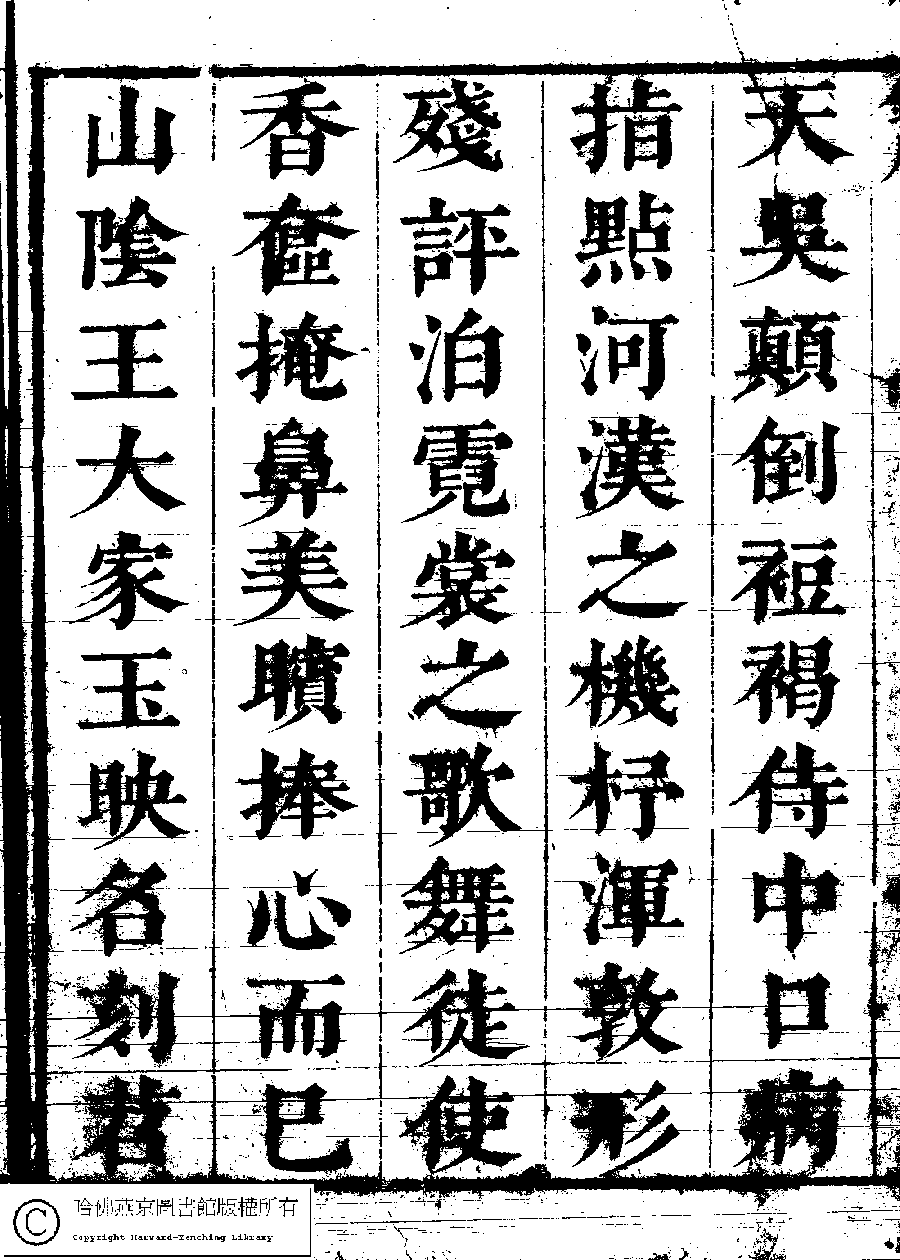 天吳顛倒裋褐侍中口病
指點河漢之機杼渾敦形
殘評泊霓裳之歌舞徒使
香奩掩鼻美瞶捧心而已
山陰王大家玉映名刻君
哈佛燕京圖書館版權所有
Copyright Harvard-Yenching Library